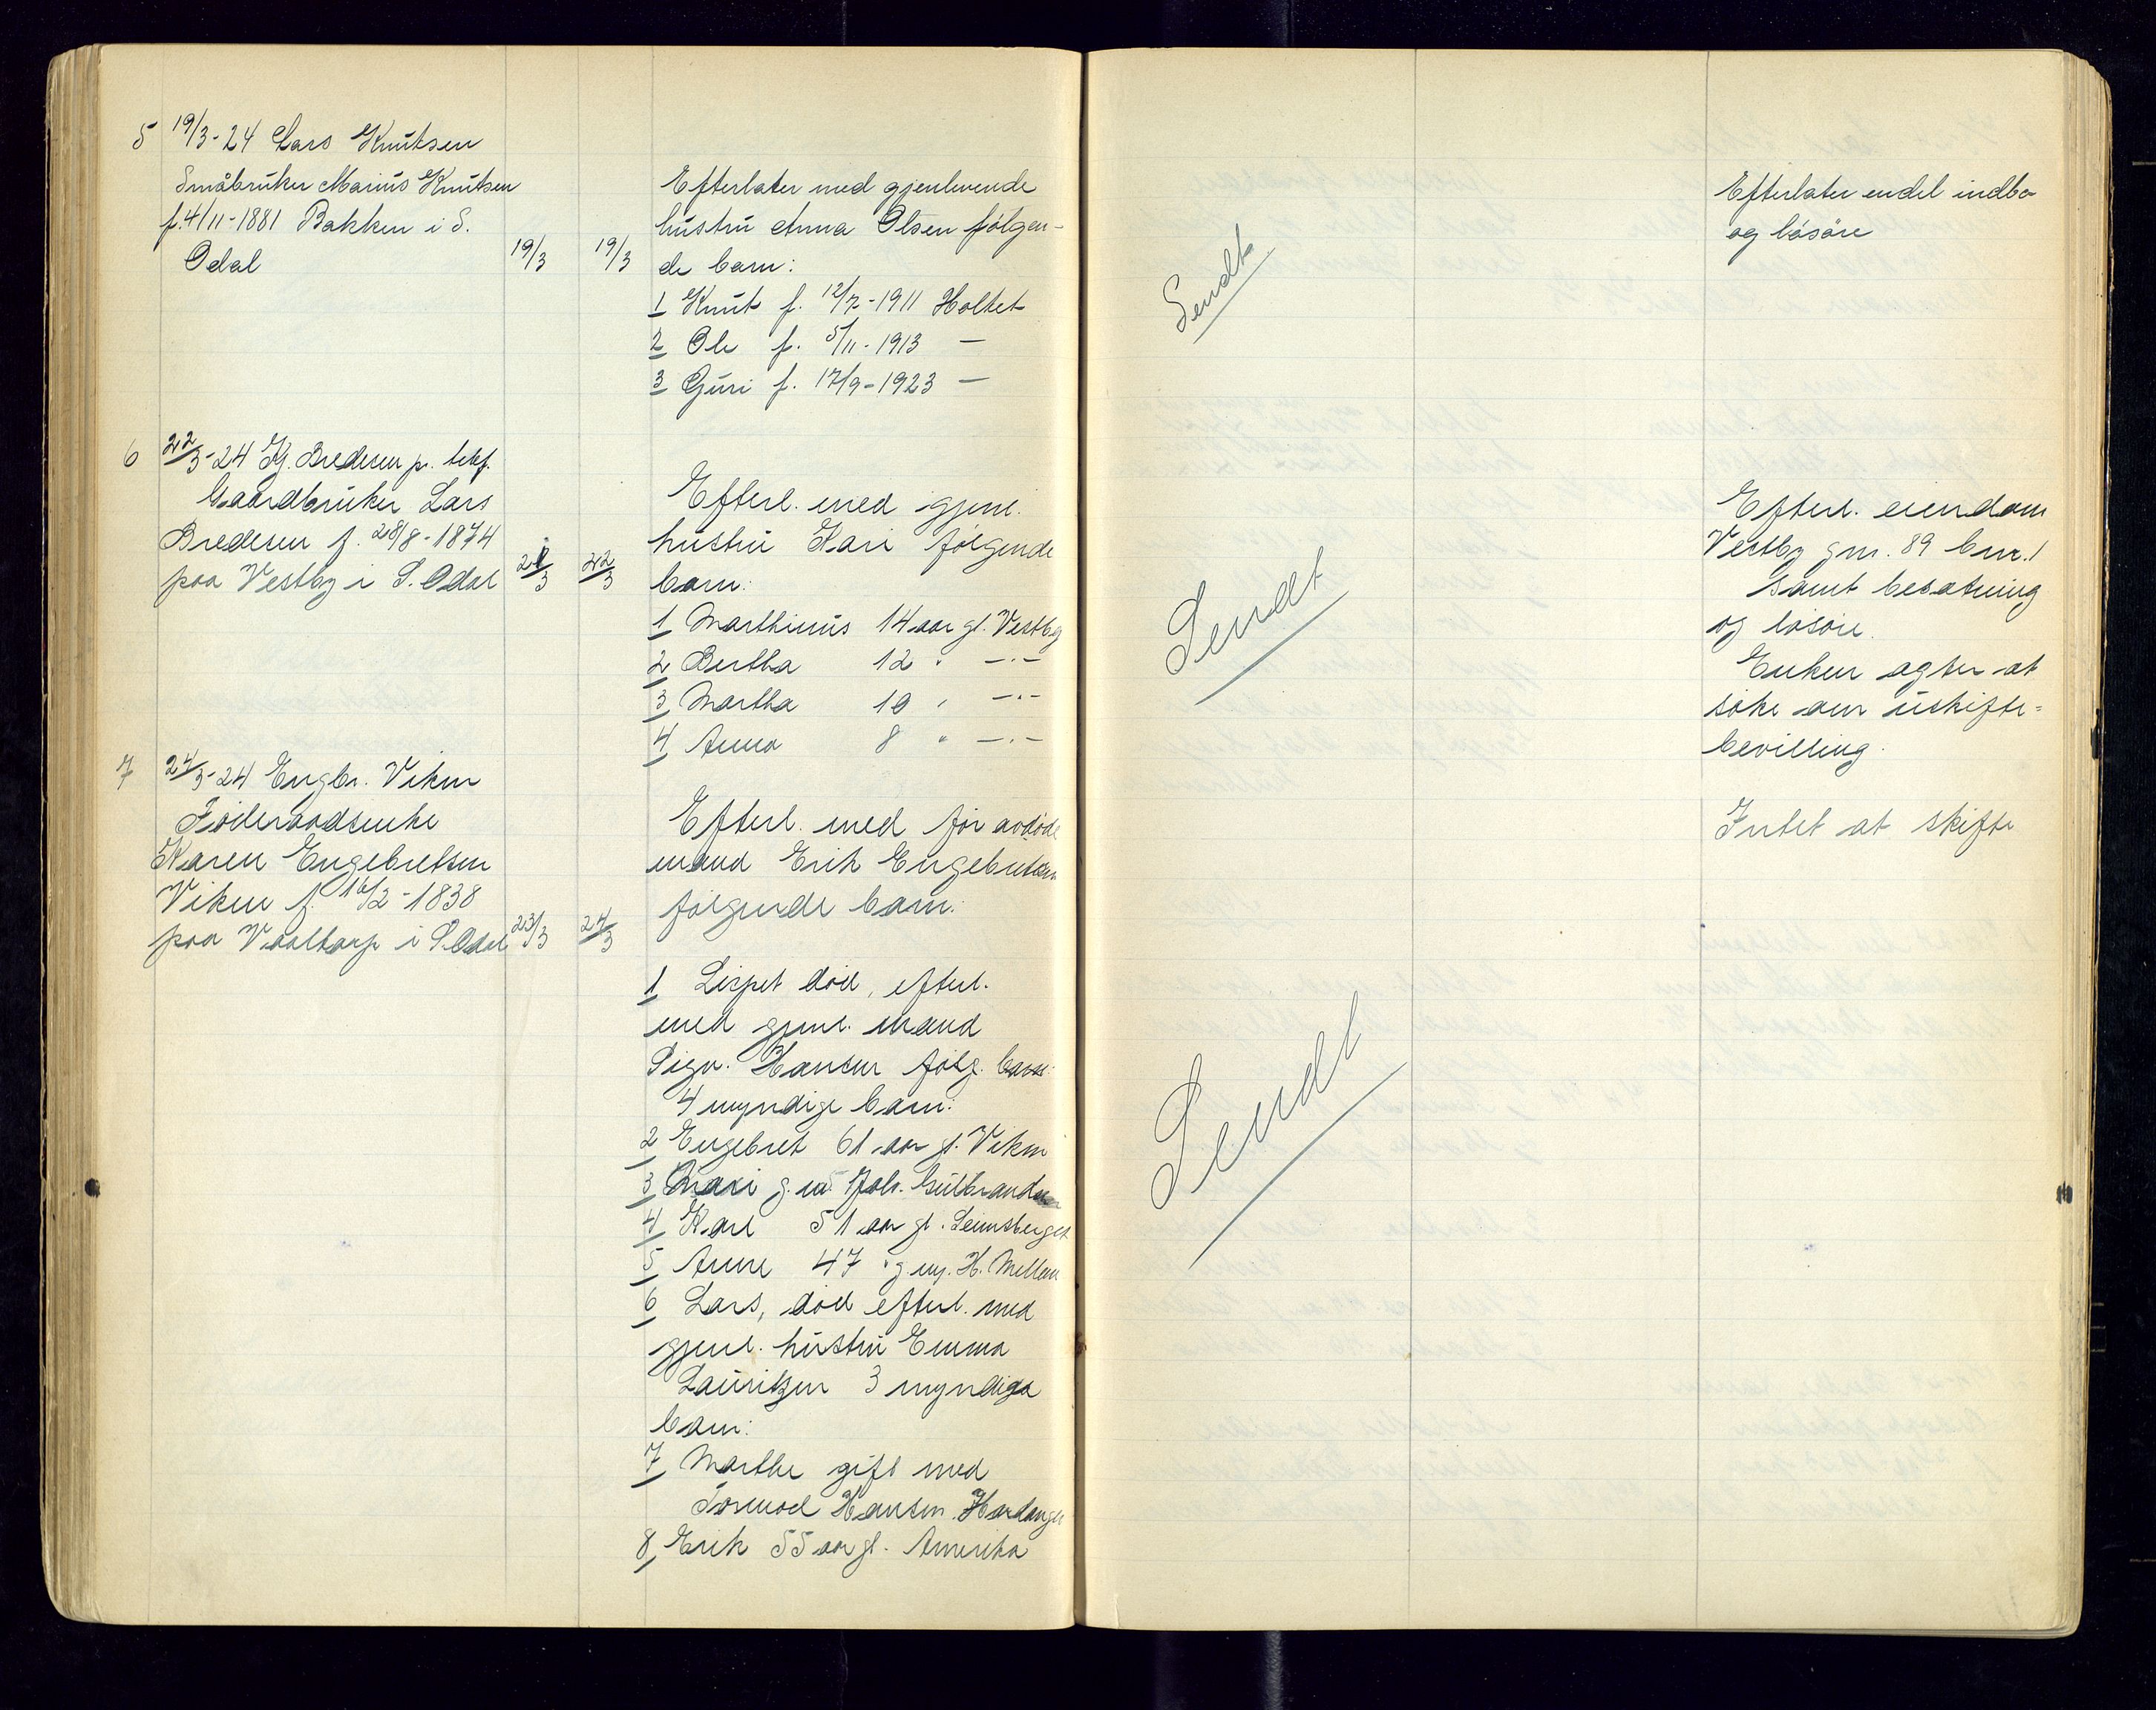 5 19/3-24 Lars Knutsen
Småbruker Marius Knutsen
f. 4/11-1881 Bakken i S.
Odal
19/3
19/3
Efterlater med gjenlevende
hustru Anna Olsen følgen-
de barn:
1 Knut f. 12/7-1911 Holtet
2 Ole f. 5/11-1913 —
3 Guri f. 17/9-1923 —
Sendt
Efterlater endel indbo
og løsøre
6 22/3-24 Kj. Bredesen pr. telf.
Gaardbruker Lars
Bredesen f. 28/8-1874
paa Vestby i S. Odal
21/3
22/3
Efterl. med gjenl.
hustru Kari følgende
barn:
1 Marthinus 14 aar gl. Vestby
2 Bertha 12 " —"—
3 Martha 10 " —"—
4 Anna 8 " —"—
Sendt
Efterl. eiendom
Vestby gnr. 89 bnr. 1
samt besætning
og løsøre.
Enken agter at
søke om uskifte=
bevilling.
7 24/3-24 Engbr. Viken
Føderaadsenke
Karen Engebretsen
Viken f. 16/2-1838
paa Vaaltorp i S. Odal
23/3
24/3
Efterl. med før avdøde
mand Erik Engebretsen
følgende barn:
1 Lispet død, efterl.
med gjenl. mand
Sigv. Hansen følg. barn:
4 myndige barn:
2 Engebret 61 aar gl. Viken
3 Mari g. m. Joh. Gulbrandsen
4 Karl 51 aar gl.
5 Anne 47 " g. m. H. Mellem
6 Lars, død efterl. med
gjenl. hustru Emma
Lauritzen 3 myndige
barn:
7 Marthe gift med
Tormod Hansen Hardanger
8 Erik 55 aar gl. Amerika
Sendt
Intet at skifte